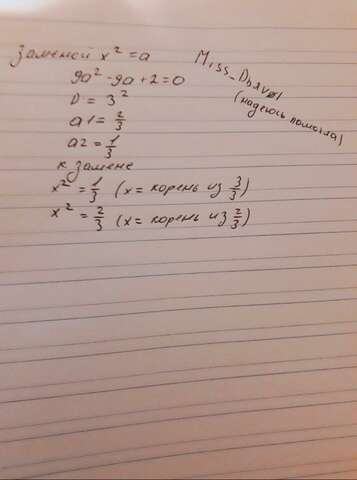 Заменой x² = a
9a² - 9a + 2 = 0
D = 3²
a1 = 2/3
a2 = 1/3
к замене
x² = 1/3 (x = корень из 3/3)
x² = 2/3 (x = корень из 2/3)
(надеюсь помогла)